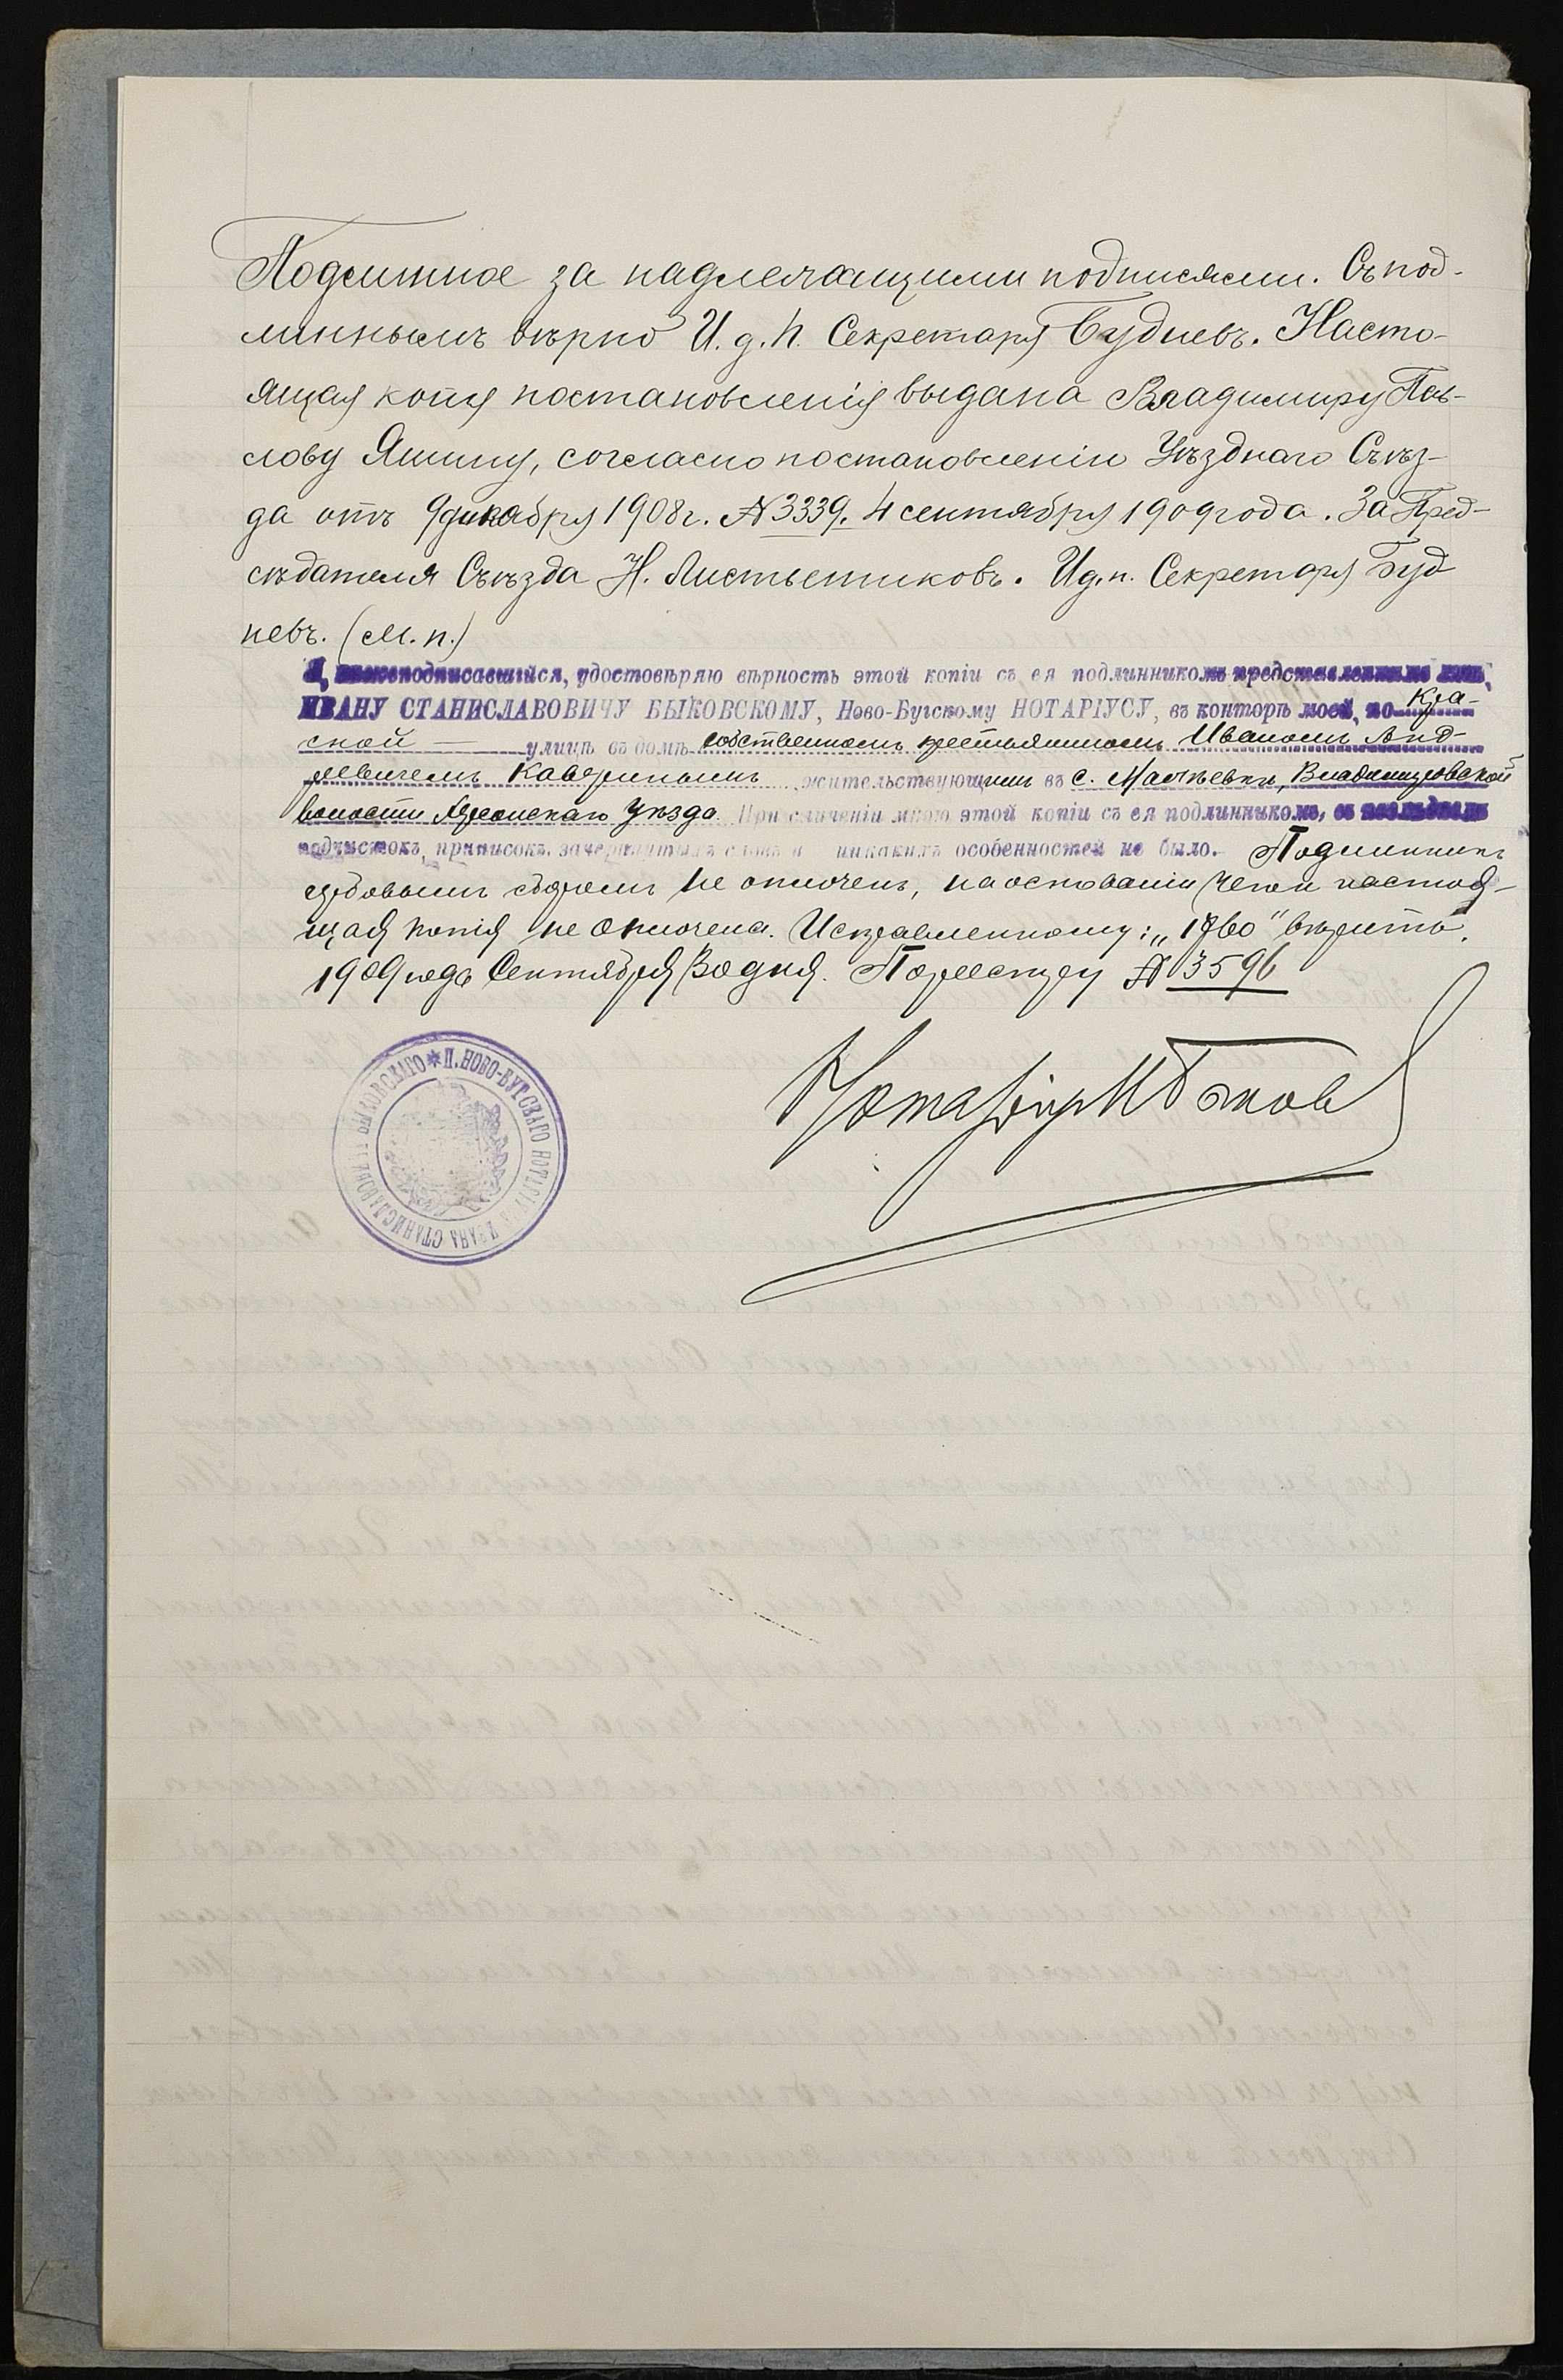 Подлинное за надлежащими подписями. Съ под-
линнымъ вѣрно И. д. п. Секретаря Будневъ. Насто-
ящая копія постановленія выдана Владимиру Пав-
лову Яшину, согласно постановленію Уѣзднаго Съѣз-
да отъ 9 декабря 1908 г. № 3339. 4 сентября 1909 года. За Пред-
сѣдателя Съѣзда Н. Листьениковъ. И.д.п. Секретаря Буд
невъ. (М. п.)
Я, нижеподписавшійся, удостовѣряю вѣрность этой копіи съ ея подлинникомъ представленнымъ мнѣ,
ИВАНУ СТАНИСЛАВОВИЧУ БЫКОВСКОМУ, Ново-Бугскому НОТАРІУСУ, въ конторѣ моей, по
ской улицѣ въ домѣ собственномъ крестьяниномъ Иваномъ Анд-
реевичемъ жительствующимъ въ с. Владимировской
волости Херсонскаго уѣзда. При сличеніи мною этой копіи съ ея подлинникомъ, въ послѣднемъ
подчистокъ, приписокъ, зачеркнутыхъ словъ и никакихъ особенностей не было. Подлинникъ
гербовымъ сборомъ не оплоченъ, на основаніи чего и настоя-
щая копія не оплочена. Исправленному: „ " вѣрить.
1909 года Сентября дня. По реестру № 3596
Нотаріусъ И Быков
* П. НОВО-БУГСКАГО НОТАРІУСА ИВАНА СТАНИСЛАВОВИЧА БЫКОВСКАГО